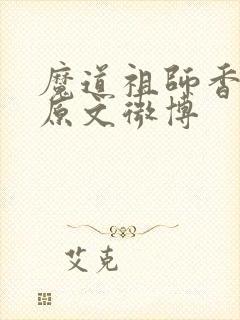 魔道祖師香
原文微博
艾克